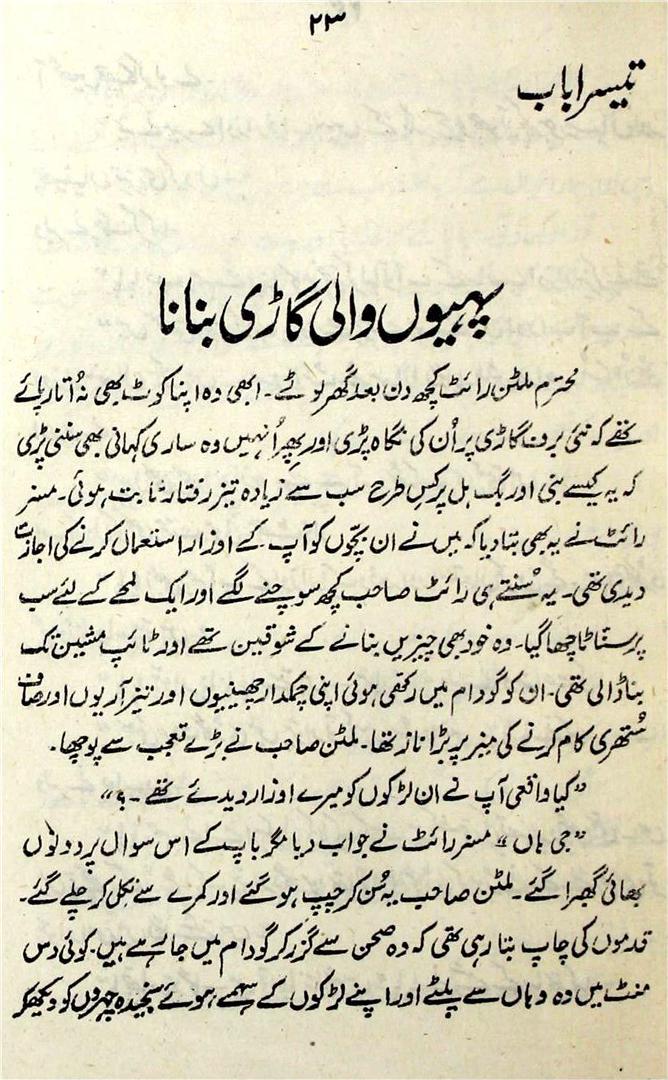 ۲۳
تیسرا باب
پہیوں والی گاڑی بنانا
محترم ملٹن رائٹ کچھ دن بعد گھر لوٹے۔ ابھی وہ اپنا کوٹ بھی نہ اُتار پائے
تھے کہ نئی برف گاڑی پر اُن کی نگاہ پڑی اور پھر اُنہیں وہ ساری کہانی بھی سننی پڑی
کہ یہ کیسے بنی اور بگ ہل پر کس طرح سب سے زیادہ تیز رفتار ثابت ہوئی۔ مسز
رائٹ نے یہ بھی بتا دیا کہ میں نے ان بچوں کو آپ کے اوزار استعمال کرنے کی اجازت
دیدی تھی۔ یہ سُنتے ہی رائٹ صاحب کچھ سوچنے لگے اور ایک لمحے کے لئے سب
پر سناٹا چھا گیا۔ وہ خود بھی چیزیں بنانے کے شوقین تھے اور ٹائپ مشین تک
بنا ڈالی تھی۔ ان کو گودام میں رکھی ہوئی اپنی چمکدار چھینیوں اور تیز آریوں اور صاف
سُتھری کام کرنے کی میز پر بڑا ناز تھا۔ ملٹن صاحب نے بڑے تعجب سے پوچھا۔
”کیا واقعی آپ نے ان لڑکوں کو میرے اوزار دیدئے تھے ۔؟“
”جی ہاں“ مسز رائٹ نے جواب دیا مگر باپ کے اس سوال پر دونوں
بھائی گھبرا گئے۔ ملٹن صاحب یہ سُن کر چپ ہو گئے اور کمرے سے نکل کر چلے گئے۔
قدموں کی چاپ بتا رہی تھی کہ وہ صحن سے گزر کر گودام میں جا رہے ہیں۔ کوئی دس
منٹ میں وہ وہاں سے پلٹے اور اپنے لڑکوں کے سہمے ہوئے سنجیدہ چہروں کو دیکھکر